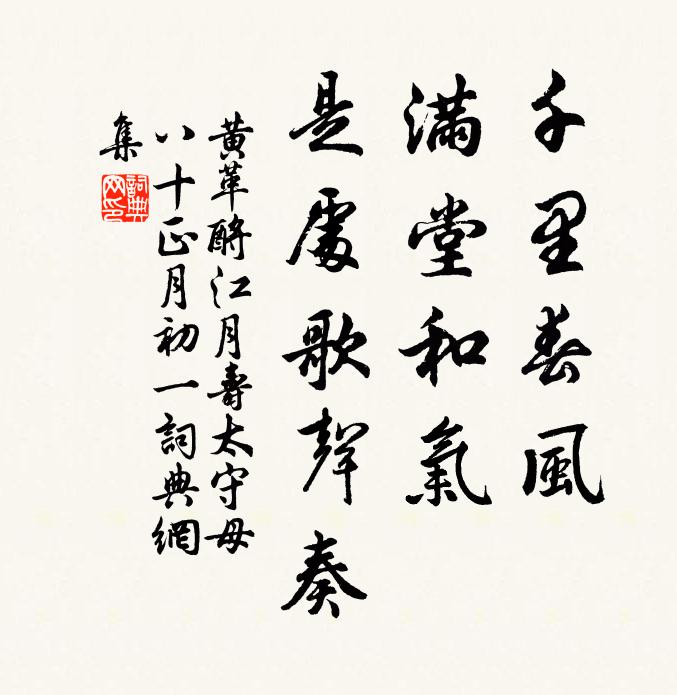 千里春風
滿堂和氣
是處歌聲奏
黃革酹江月壽太守母
八十正月初一詞典網
集
詞典
网印